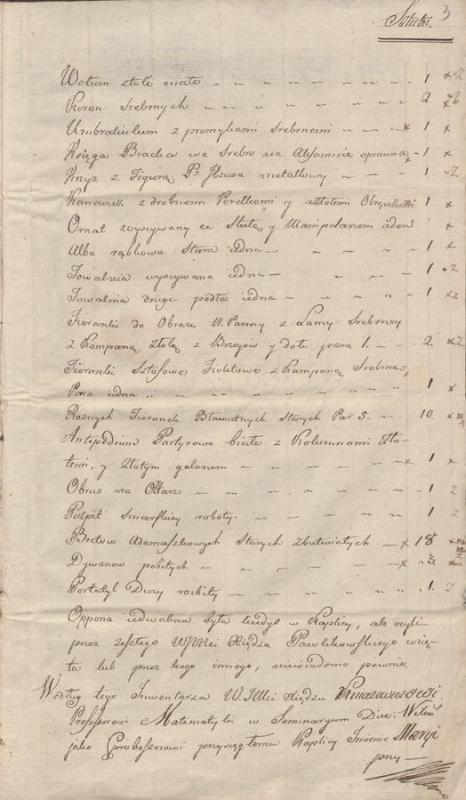 3
Sztuki.
Wotum złote małe — 1 x
Koron Srebrnych — 2
Umbraliulum z promykami Srebrnemi — x 1 x
Księga Bracka we Srebro na Axamicie oprawna x 1 x
Krzyż z Figurą P. Jezusa metallowy — 1
Kanawek z drobnemi Perełkami y złotemi 1 x
Ornat wyszywany ze Stułą y Manipularzem ieden x
Alba rąbkowa Stara iedna — 1 x
Towalnia wyszywana iedna — 1
Towalnia druga podła iedna — 1
Firanki do Obrazu N. Panny z Lamy Srebrney
z Kampaną złotą z Brzegów y dołu para 1. — 2.
Firanki Sztofowe Fioletowe z Kampaną Srebrną,
Para iedna — 1 x
Roznych Firanek Bławatnych Starych Par 5. — 10
Antipodium Partyrowe białe z Kolumnami zło-
temi, y złotym galonem — x 1 x
Obrus na Ołtarz — 1
Pulpit roboty — 1
Adamaszkowych Starych zbutwiałych — x 18
Dywanow podbitych — x 3.
Portatyl Duży rozbity — 1.
Oppona iedwabna była kiedyś w Kaplicy, ale czyli
przez zeszłego Xiędza Pawlikowskiego wzię-
ta lub przez kogo innego, niewiadomo pewnie.
Według tego Inwentarza Xiędzu
Professorowi Matematyki w Seminaryum
jako Proboszczowi przyszłemu Kaplicy Imienia Maryi
przy —